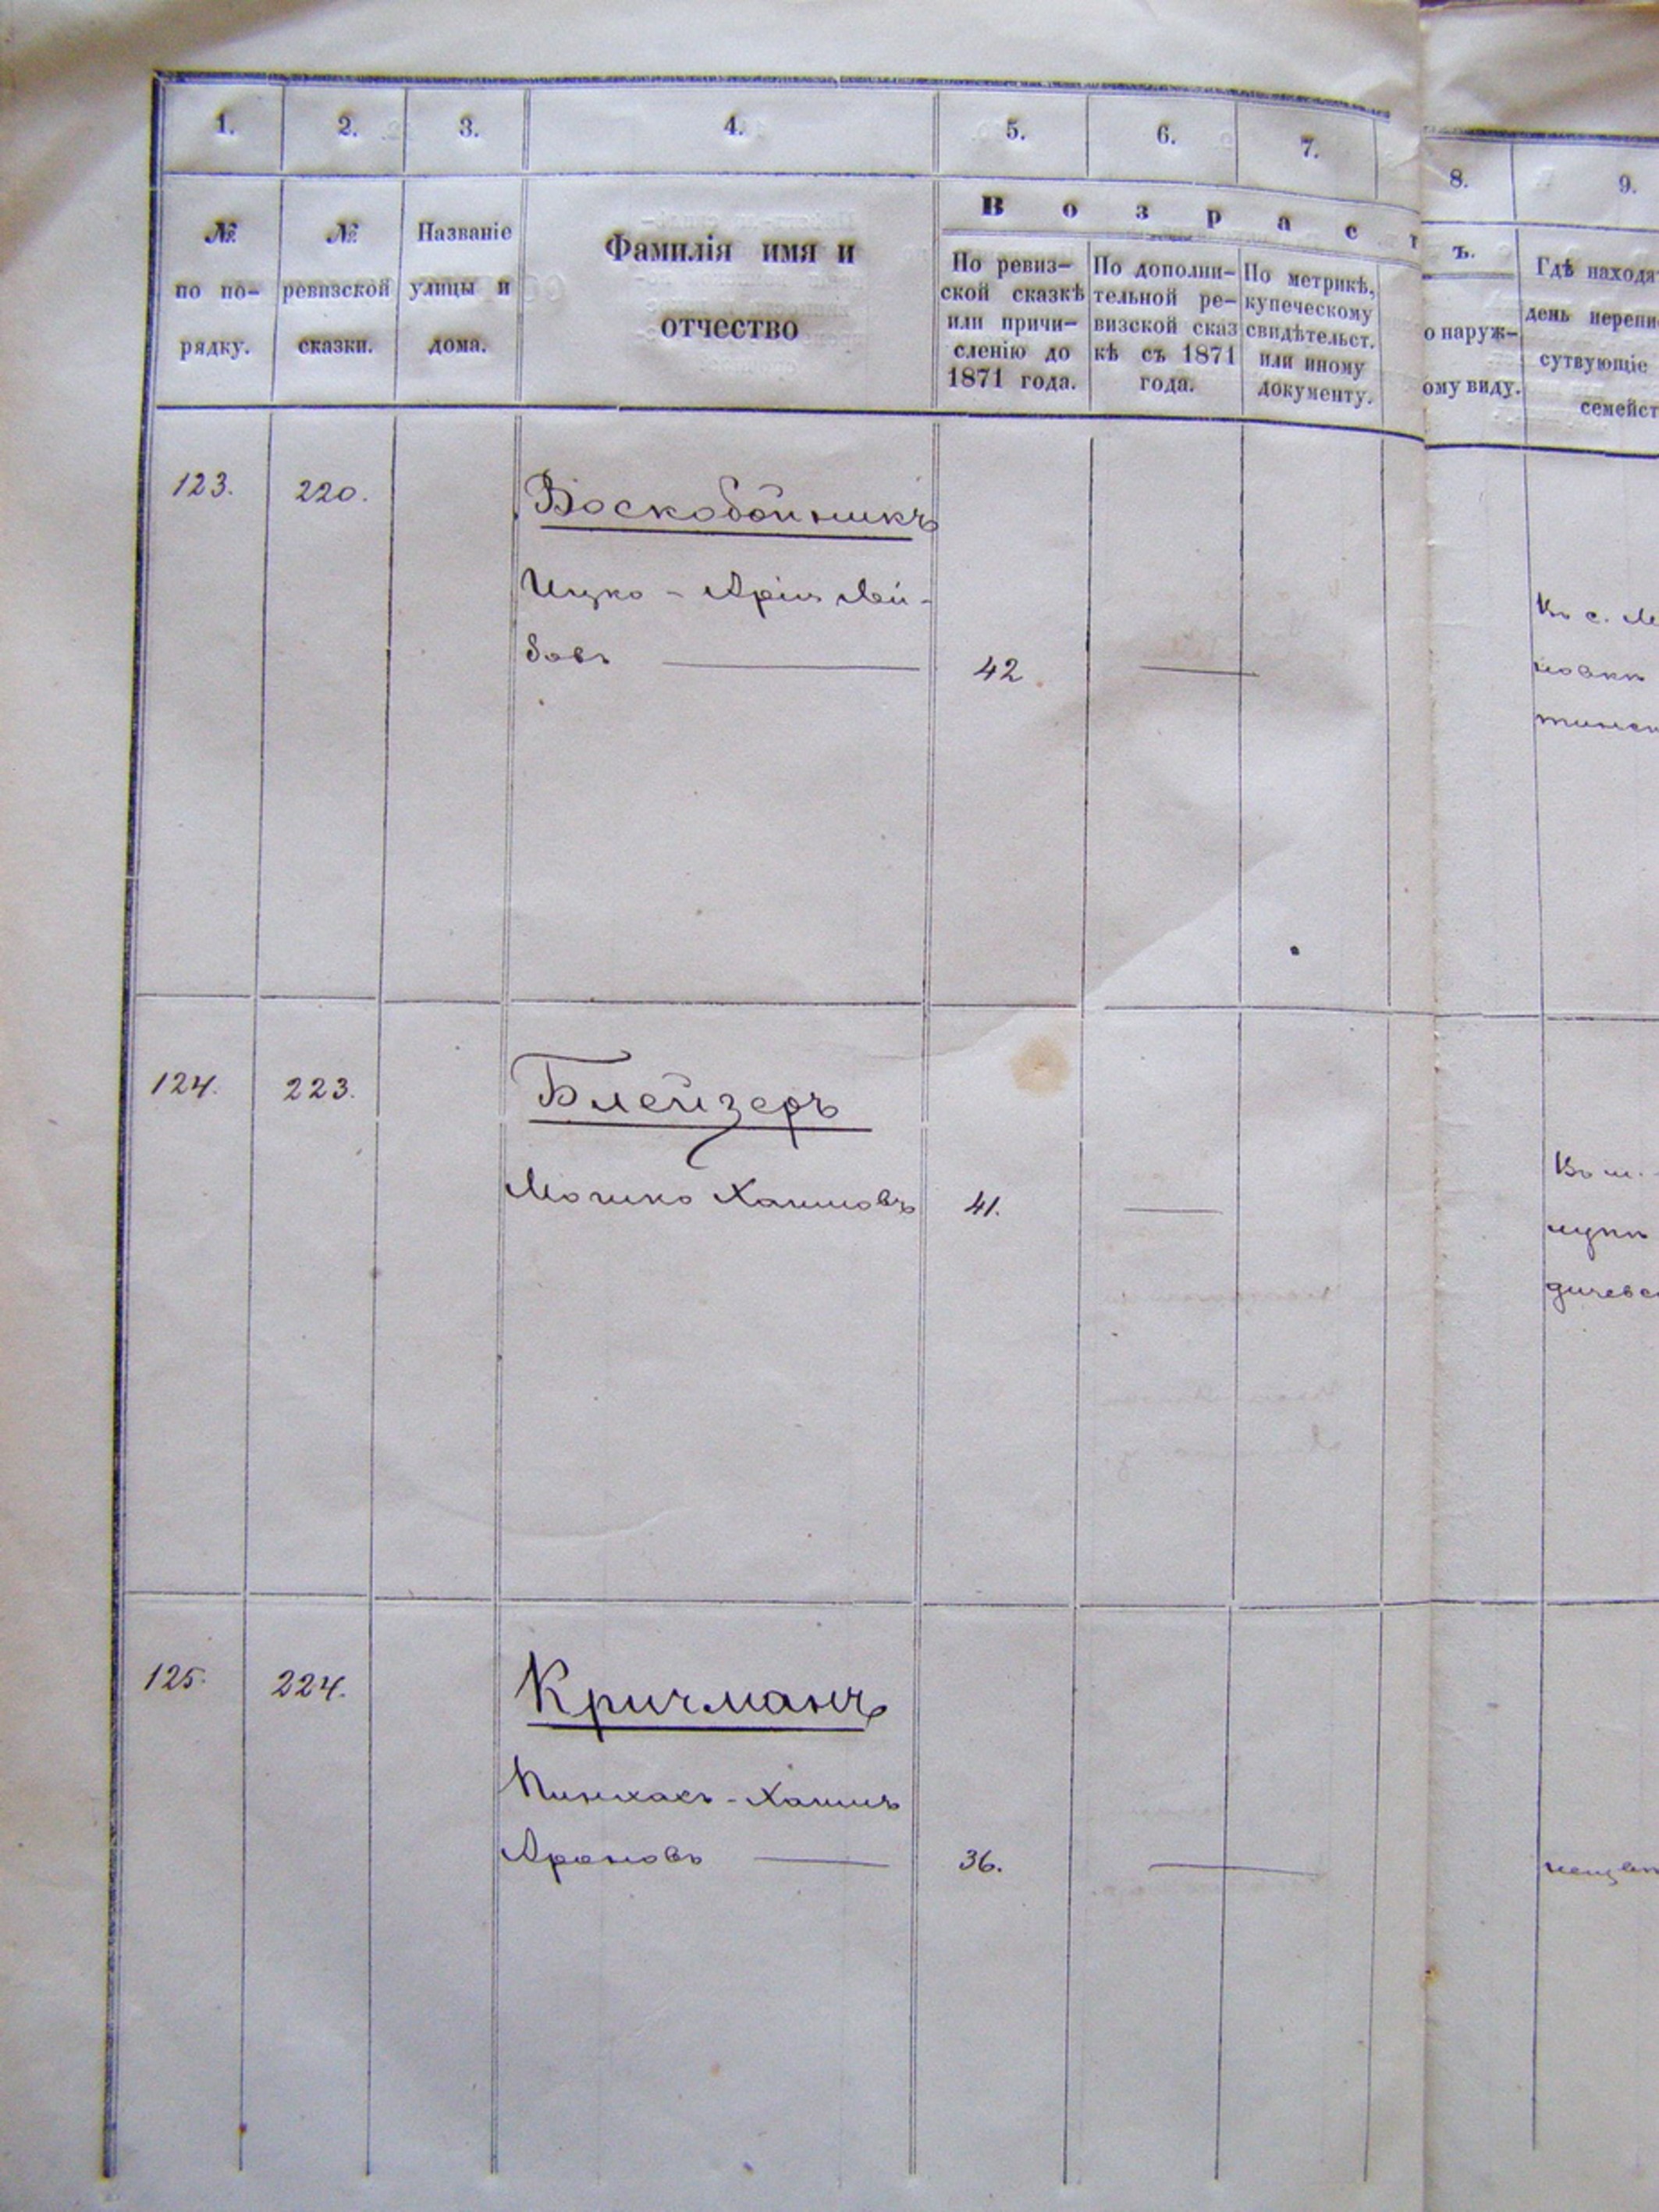 1. 2. 3. 4. 5. 6. 7. 8. 9.
№ по по-рядку.
№ ревизской сказки.
Названіе улицы и дома.
Фамилія имя и
отчество
Возраст
ъ.
По ревиз-
ской сказкѣ
или причи-
сленію до
1871 года.
По дополни-
тельной ре-
визской сказ
кѣ съ 1871
года.
По метрикѣ,
купеческому
свидѣтельст.
или иному
документу.
о наруж-
ому виду.
Гдѣ находя
день перепи
сутвующіе
семейст
123. 220. Воскобойникъ
Ицко - Арія Лей-
зовъ 42
Въ с.
новки
тинск
124. 223. Блейзеръ
Мошко Хаимовъ 41.
дичевс
125. 224. Кричманъ
Пинхасъ - Хаимъ
Ароновъ 36.